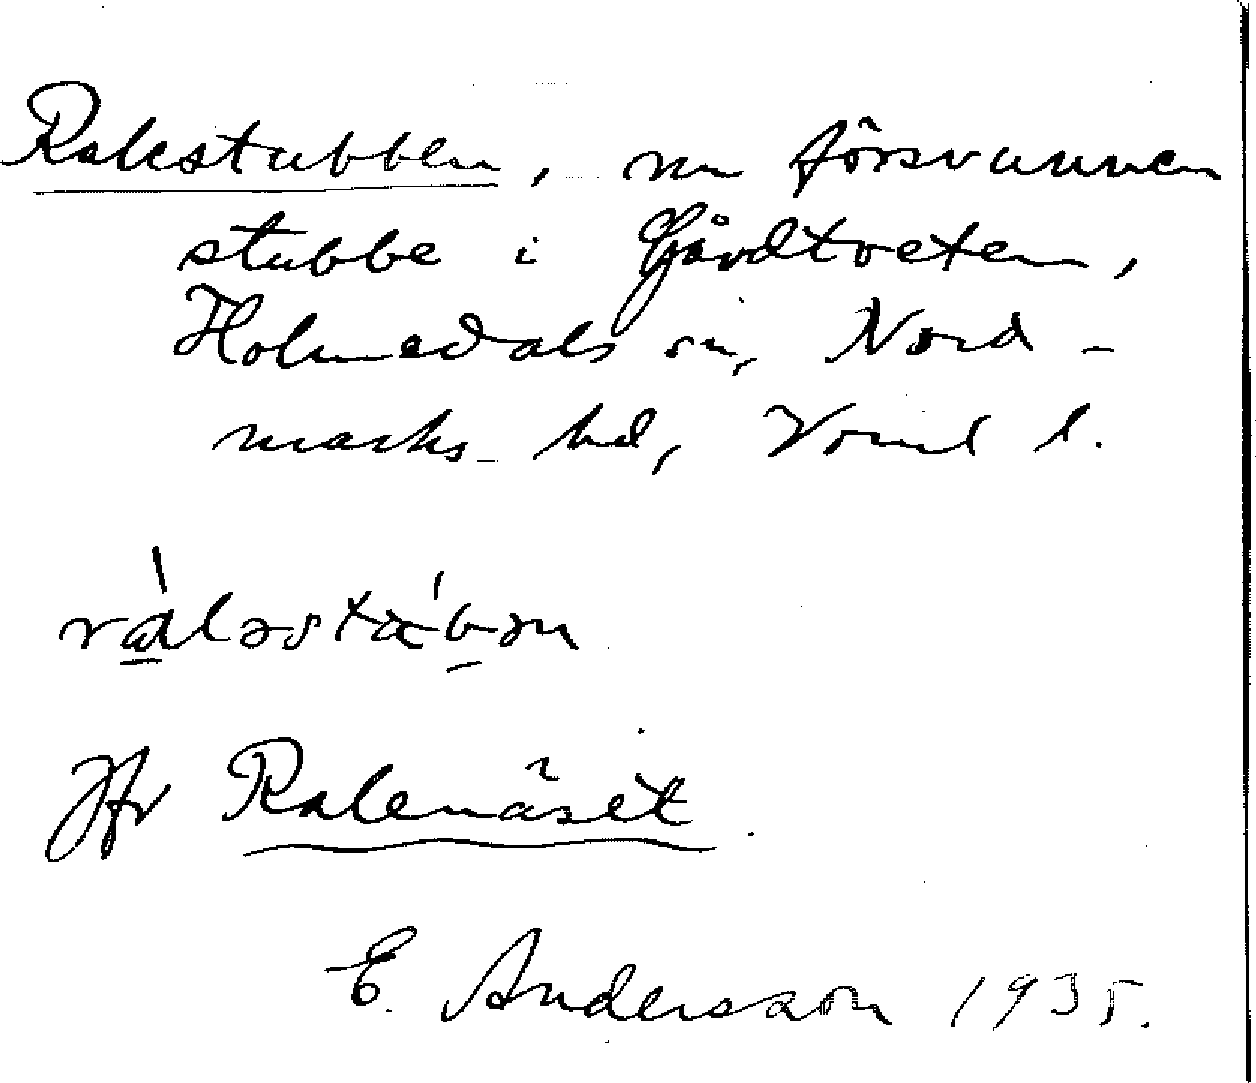 Ralestubben, nu försvunnen
stubbe i Gårdtveten,
Holmedals sn, Nord-
marks hd, Värml l.
Jfr Ralenäset.
E. Andersson 1935.